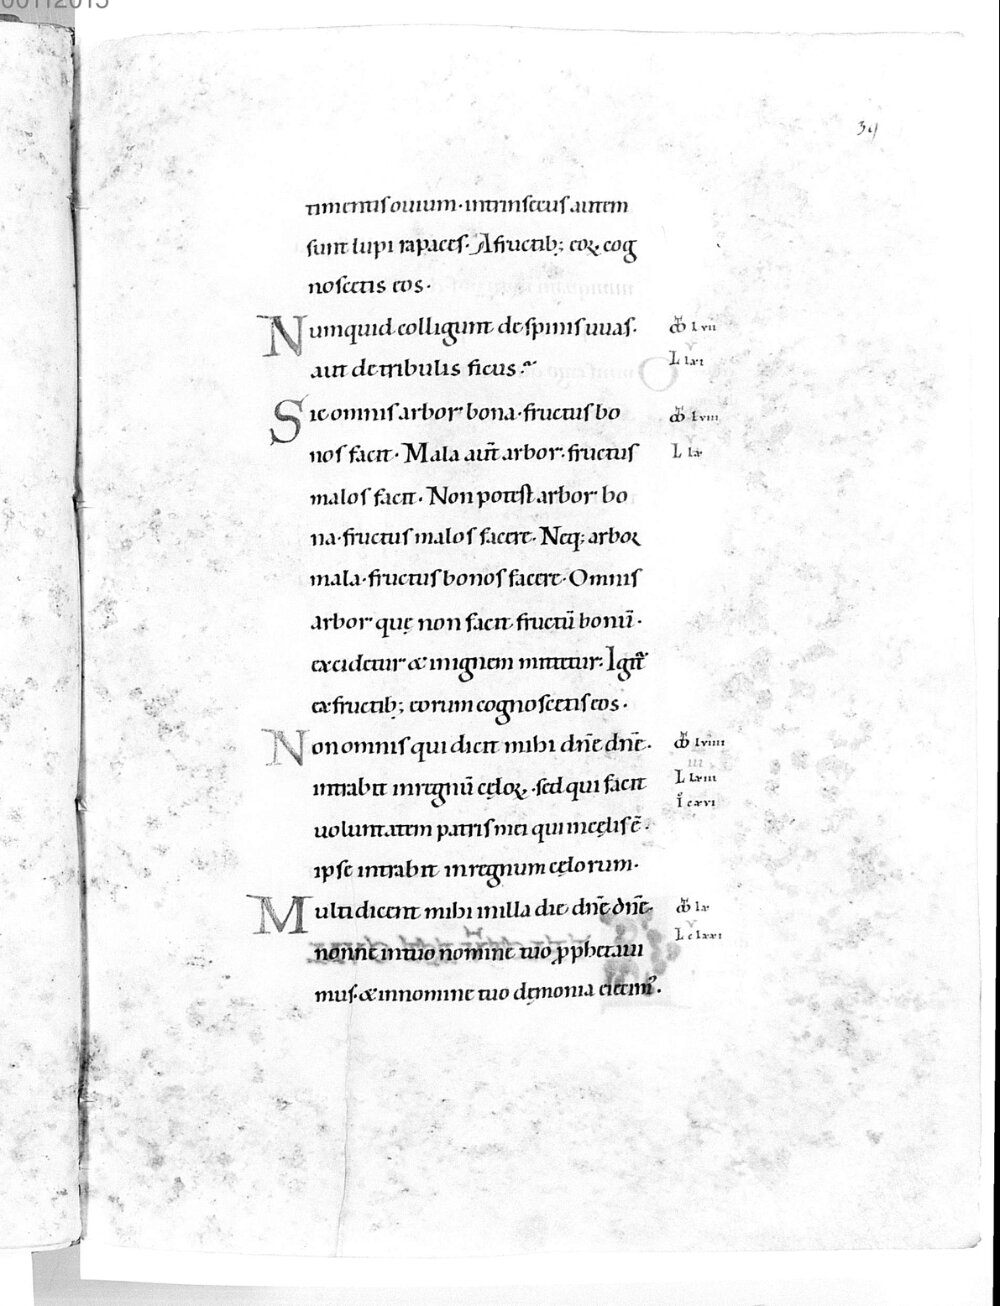 00112015
39
timentis ouium· intrinsecus autem
sunt lupi rapaces· A fructib; eoꝝ cog
noscetis eos·
Numquid colligunt de spinis uuas·
aut de tribulis ficus·
Sic omnis arbor bona· fructus bo
nos facit· Mala aut̄ arbor· fructus
malos facit· Non potest arbor bo
na· fructus malos facere· Neq; arbor
mala· fructus bonos facere· Omnis
arbor quę non facit fructū bonū·
excidetur & in ignem mittetur· Igit̃
ex fructib; eorum cognoscetis eos·
Non omnis qui dicit mihi dn̄e dn̄e·
intrabit in regnū cęloꝝ· sed qui facit
uoluntatem patris mei qui in cęlis ē·
ipse intrabit in regnum cęlorum·
Multi dicent mihi in illa die dn̄e dn̄e·
nonne in tuo nomine tuo ꝓphetaui
mus· & in nomine tuo dęmonia eiecim᾽·
lvii
L lxi
lviii
L lx
lviiii
L lviii
cxvi
lx
L clxxi